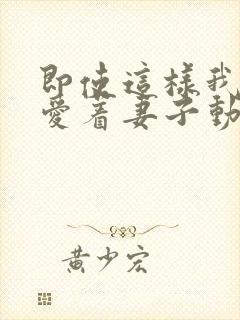 即使這樣我
愛着妻子動
黃少宏